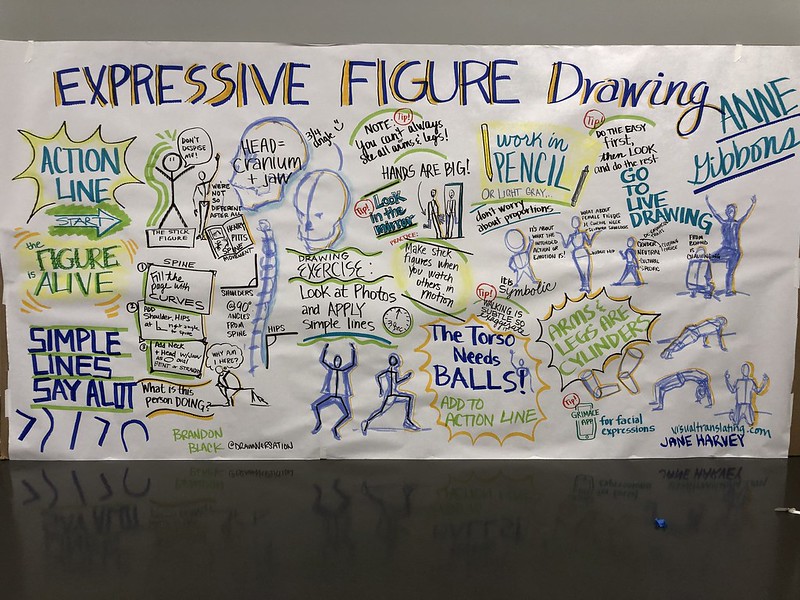 EXPRESSIVE FIGURE Drawing
ANNE
Gibbons
ACTION
LINE
START
the
FIGURE
is
ALIVE
SIMPLE
LINES
SAY ALOT
DON'T
DESPISE
ME!
THE STICK
FIGURE
WE'RE
NOT
SO
DIFFERENT
AFTER ALL
HENRY
PITTS
SPINE
MOVEMENT
HEAD=
cranium
+ jaw
3/4
angle
SPINE
1
Fill the
page with
CURVES
2
ADD
Shoulder, HIPS
at right angle
to spine
3
Add Neck
+ Head
BENT or STRAIGHT
SHOULDERS
@90°
ANGLES
FROM
SPINE
HIPS
WHY AM
I HERE?
What is this
person DOING?
BRANDON
BLACK
@DRAWNVERSATION
NOTE:
You can't always
see all arms & legs!
Tip!
HANDS ARE BIG!
Tip!
Look
in the
mirror
DRAWING
EXERCISE:
Look at Photos
and APPLY
simple lines
30 sec
PRACTICE:
Make stick
figures when
you watch
others in
motion
work in
PENCIL
OR LIGHT GRAY...
don't worry
about proportions
Tip!
DO THE EASY
first,
then LOOK
and do the rest
GO
TO LIVE
DRAWING
IT'S ABOUT
WHAT THE
INTENDED ACTION
or EMOTION IS!
WHAT ABOUT
FEMALE FIGURES
GENDER
NEUTRAL
CULTURAL
SPECIFIC
FROM
BEHIND IS
CHALLENGING
it's
Symbolic
Tip!
WALKING IS
SUBTLE SO
exaggerate
The Torso
Needs
BALLS!
ADD TO
ACTION LINE
ARMS &
LEGS ARE
CYLINDERS
Tip!
GRIMACE
APP
for facial
expressions
visualtranslating.com
JANE HARVEY